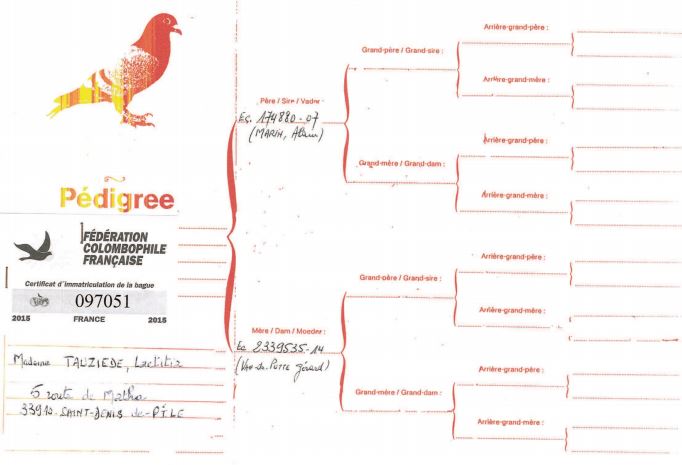 Pédigree
FÉDÉRATION
COLOMBOPHILE
FRANÇAISE
Certificat d'immatriculation de la bague
097051
2015 FRANCE 2015
Madame TAUZIEDE, Laetitia
5 route de Matha
33910. SAINT-DENIS de-PILE
Père / Sire / Vader :
Ec. 174880-07
(MARIN, Alain)
Mère / Dam / Moeder :
Ec 2339535-14
(Van-de-Putte Gérard)
Grand-père / Grand-sire :
Grand-mère / Grand-dam :
Grand-père / Grand-sire :
Grand-mère / Grand-dam :
Arrière-grand-père :
Arrière-grand-mère :
Arrière-grand-père :
Arrière-grand-mère :
Arrière-grand-père :
Arrière-grand-mère :
Arrière-grand-père :
Arrière-grand-mère :